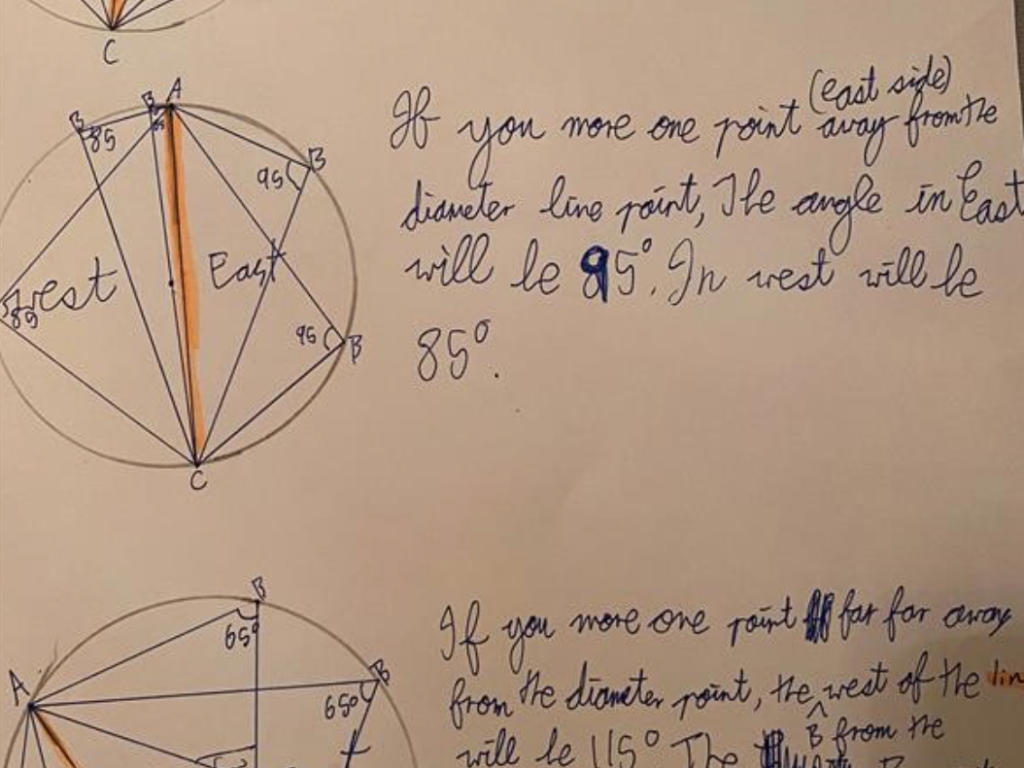 C
B
B
A
85
(east side)
If you move one point away from the
95
B
diameter line point, The angle in East
West
East
will be 95°. In west will be
85
95
B
85°.
C
B
65°
If you move one point far far away
A
B
from the diameter point, the west of the lin
65°
B from the
will be 115° The